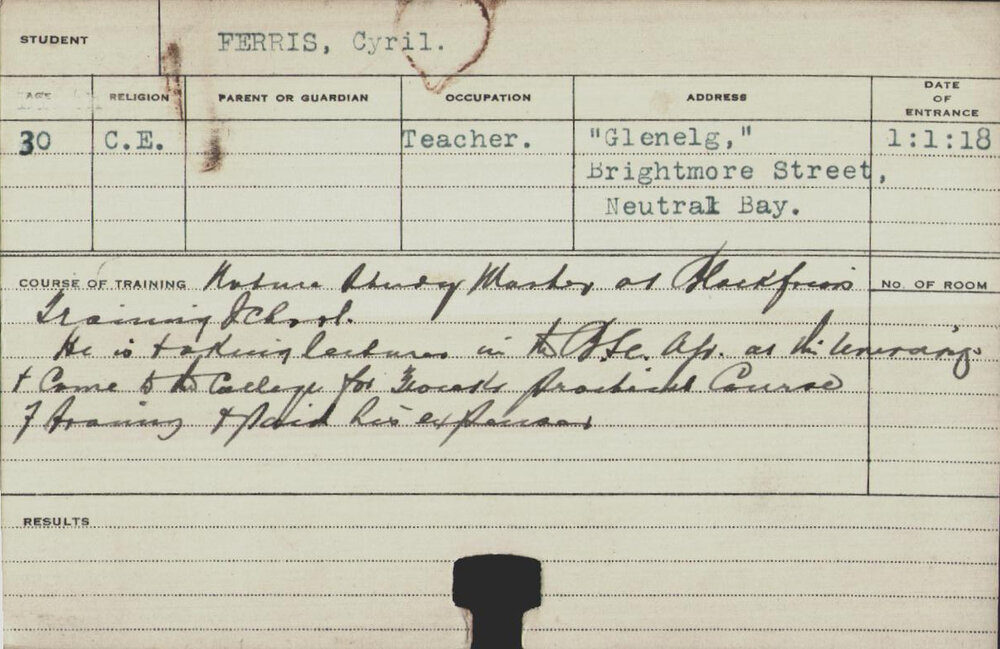 STUDENT FERRIS, Cyril.
AGE RELIGION PARENT OR GUARDIAN OCCUPATION ADDRESS DATE OF ENTRANCE
30 C.E. Teacher. "Glenelg," 1:1:18
Brightmore Street,
Neutral Bay.
COURSE OF TRAINING Nature Study Master at Blackfriars No. OF ROOM
Training School.
He is taking lectures in the B.Sc. at the University
& came to the College for practical Course
of training & paid his expenses
RESULTS